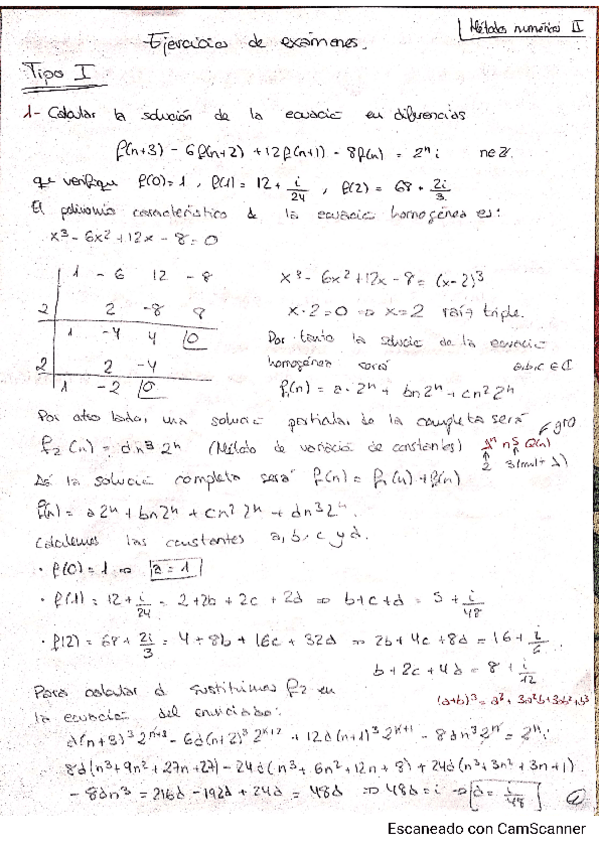 Métodos numéricos II
Ejercicios de exámenes.
Tipo I
1- Calcular la solución de la ecuació en diferencias
f(n+3) - 6f(n+2) + 12f(n+1) - 8f(n) = 2ⁿi n∈ℤ
que verifique f(0)=1, f(1)= 12 + i/24, f(2) = 68 + 2i/3
El polinomio característico de la ecuació homogénea es:
x³ - 6x² + 12x - 8 = 0
1 -6 12 -8
2 2 -8 8
1 -4 4 0
2 2 -4
1 -2 0
x³ - 6x² + 12x - 8 = (x-2)³
x-2=0 ⇒ x=2 raíz triple.
Por tanto la solució de la ecuació
homogénea será a,b,c ∈ ℂ
f₁(n) = a·2ⁿ + bn2ⁿ + cn²2ⁿ
Por otro lado, una solució particular de la completa será
f₂(n) = dn³2ⁿ (Método de variació de constantes) λⁿ nˢ Q(n) gr0
2 3(mult λ)
Así la solució completa será f(n) = f₁(n) + f₂(n)
f(n) = a2ⁿ + bn2ⁿ + cn²2ⁿ + dn³2ⁿ.
Calculemos las constantes a, b, c y d.
· f(0)=1 ⇒ a=1
· f(1) = 12 + i/24 = 2+2b+2c+2d ⇒ b+c+d = 5 + i/48
· f(2) = 68 + 2i/3 = 4 + 8b + 16c + 32d ⇒ 2b+4c+8d = 16 + i/6
b+2c+4d = 8 + i/12
Para calcular d sustituimos f₂ en (a+b)³ = a³ + 3a²b+3ab²+b³
la ecuació del enunciado:
d(n+3)³2ⁿ⁺³ - 6d(n+2)³2ⁿ⁺² + 12d(n+1)³2ⁿ⁺¹ - 8dn³2ⁿ = 2ⁿi
8d(n³+9n²+27n+27) - 24d(n³+6n²+12n+8) + 24d(n³+3n²+3n+1)
- 8dn³ = 216d - 192d + 24d = 48d ⇒ 48d = i ⇒ d = i/48
Escaneado con CamScanner